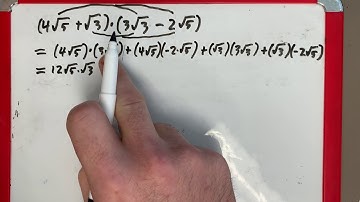 (4√5 + √3)·(3√3 − 2√5)
= (4√5)·(3√3) + (4√5)(−2·√5) + (√3)(3√3) + (√3)(−2√5)
= 12√5·√3